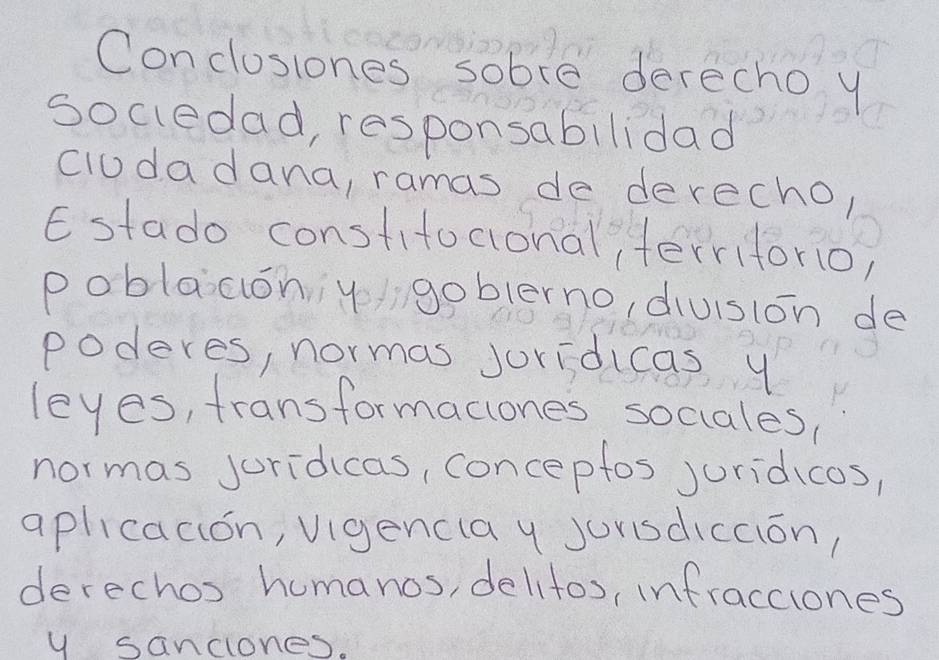 Conclusiones sobre derecho y
Sociedad, responsabilidad
ciudadana, ramas de derecho,
Estado constitucional, territorio,
población y gobierno, división de
poderes, normas jurídicas y
leyes, transformaciones sociales,
normas jurídicas, conceptos jurídicos,
aplicación, vigencia y jurisdicción,
derechos humanos, delitos, infracciones
y sanciones.